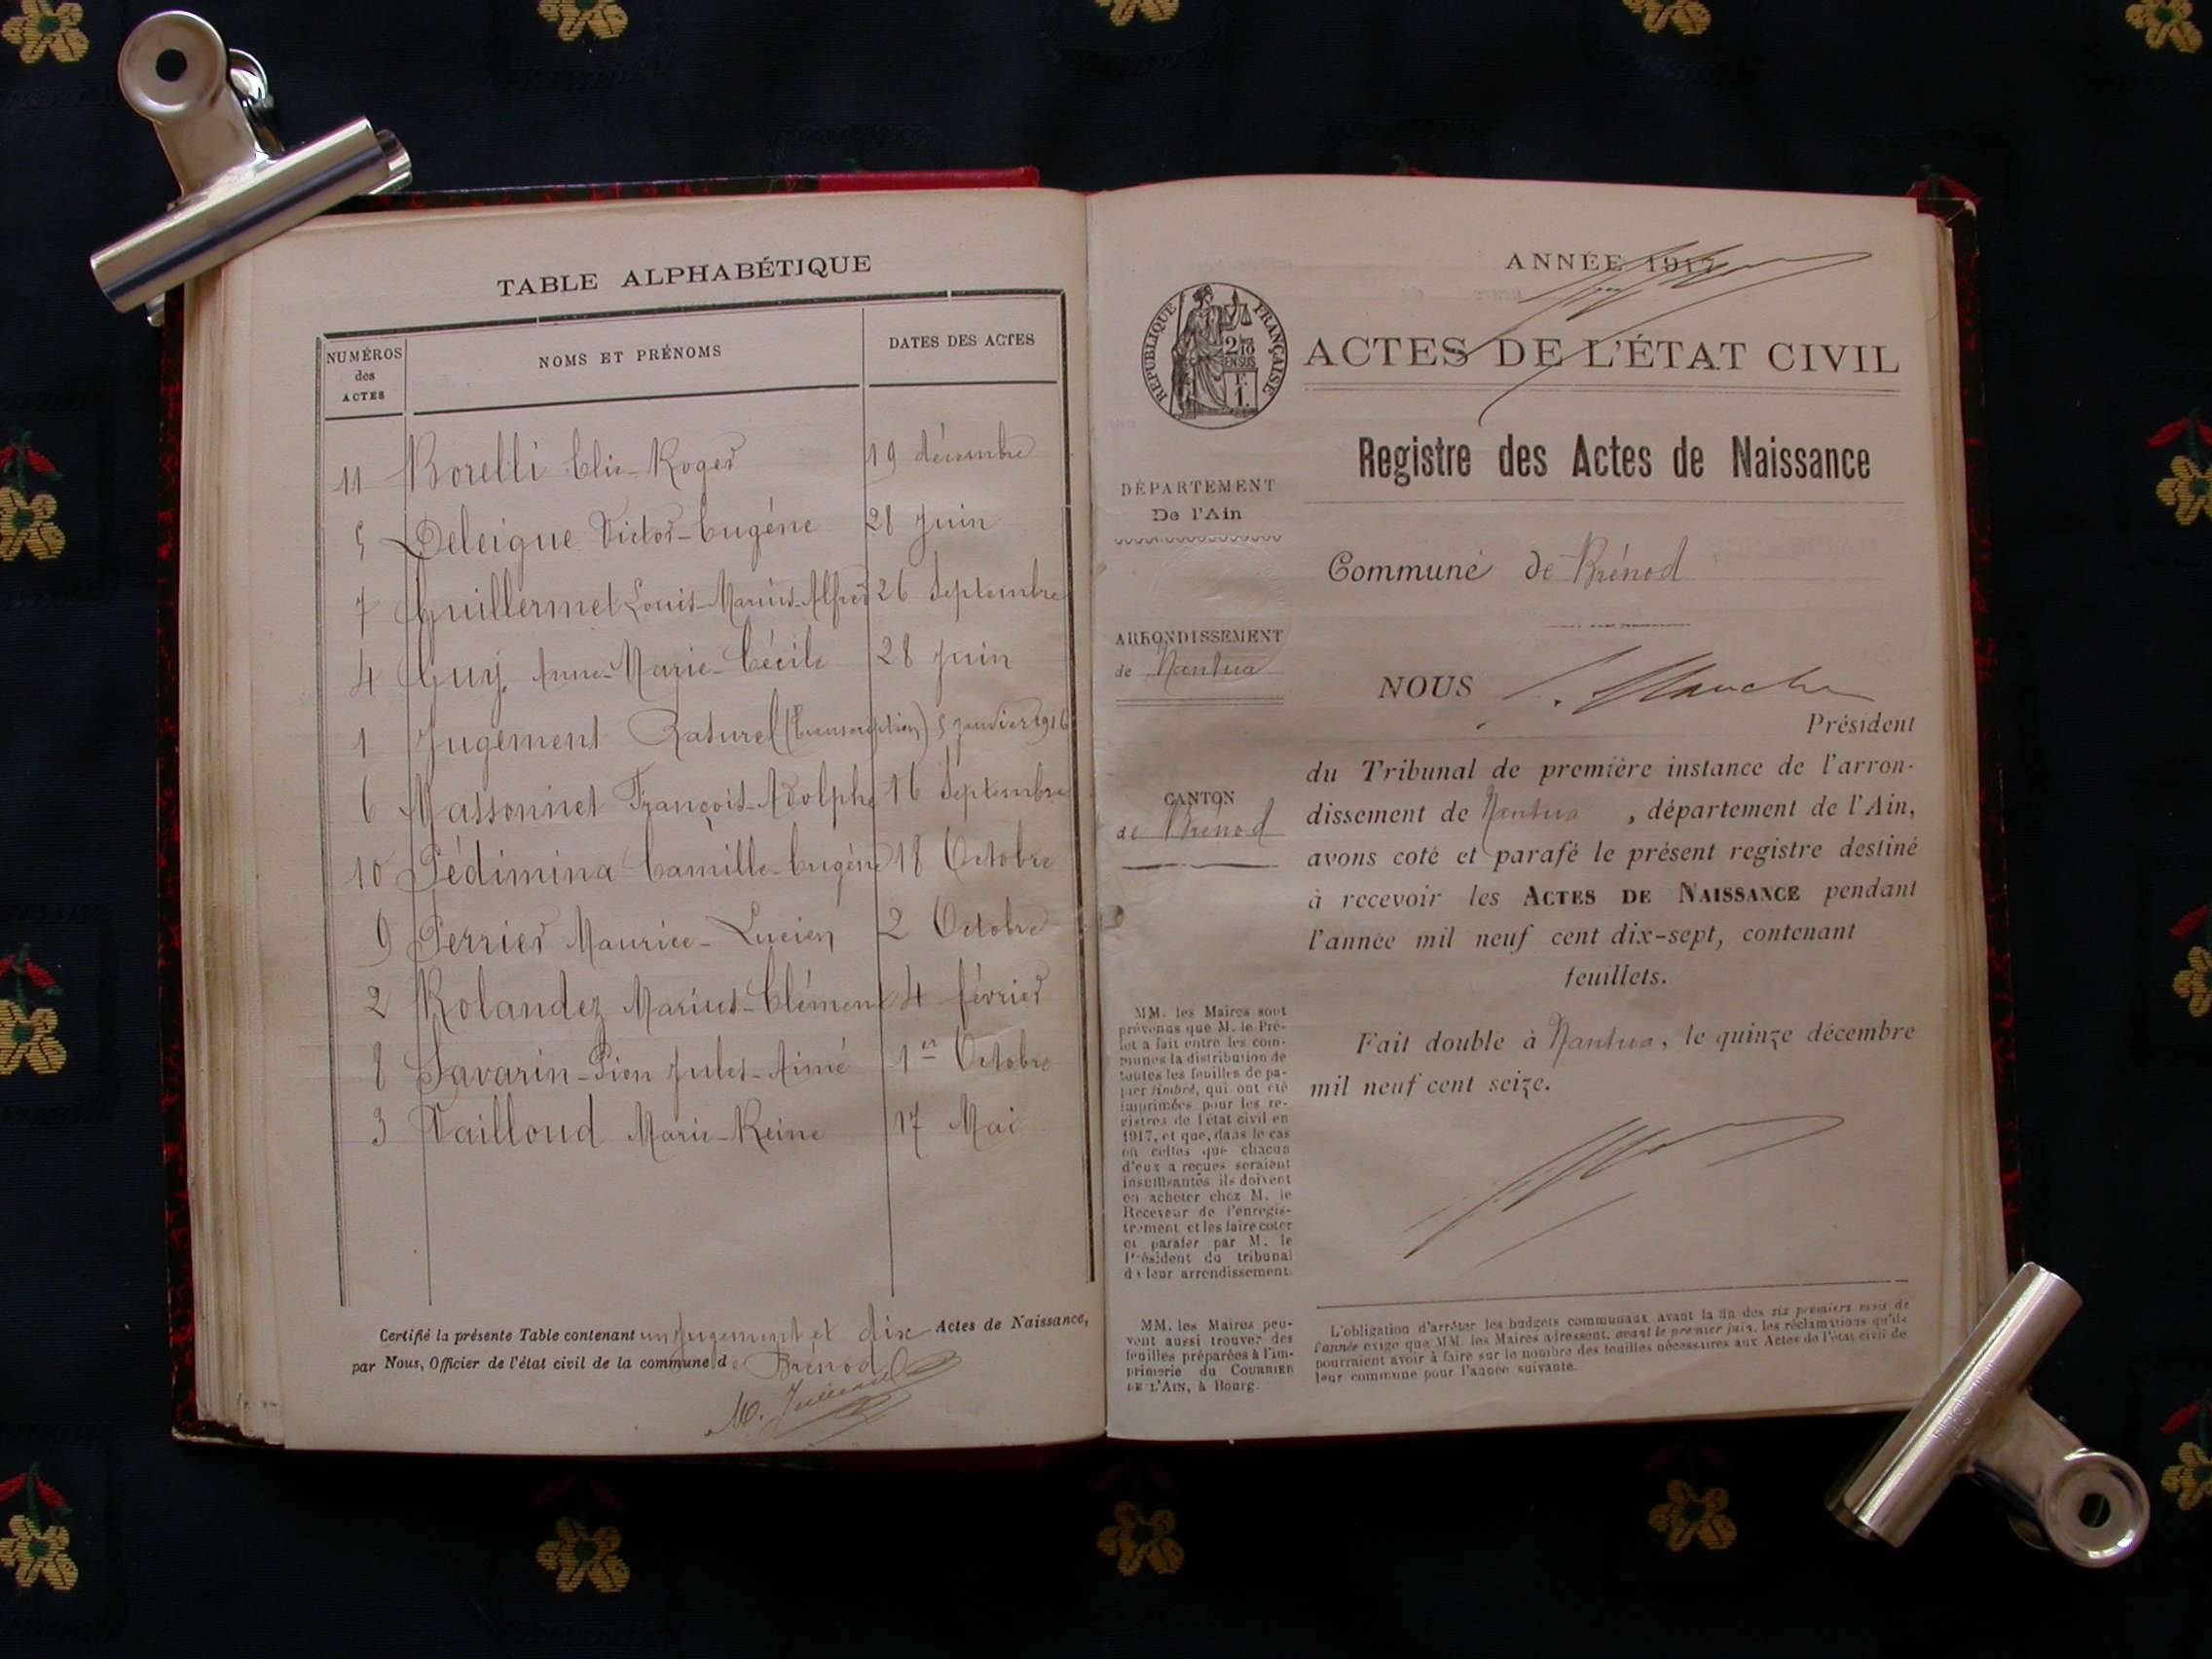 TABLE ALPHABÉTIQUE
NUMÉROS des ACTES
NOMS ET PRÉNOMS
DATES DES ACTES
11 Borelli Elie-Roger 19 décembre
5 Deleigue Victor-Eugène 28 Juin
7 Guillermet Louis-Marius-Alfred 26 Septembre
4 Guy Anne-Marie-Cécile 28 Juin
1 Jugement Raturel (transcription) 5 Janvier 1916
6 Massonnet François-Adolphe 16 Septembre
10 Pédimina Camille-Eugène 18 Octobre
9 Perrier Maurice-Lucien 2 Octobre
2 Rolandez Marius-Clément 4 février
8 Savarin-Pion Jules-Aimé 1er Octobre
3 Vailloud Marie-Reine 17 Mai
Certifié la présente Table contenant un Jugement et dix Actes de Naissance,
par Nous, Officier de l'état civil de la commune de Brénod
ANNÉE 1917
RÉPUBLIQUE FRANÇAISE
2/10 EN SUS
F. 1.
ACTES DE L'ÉTAT CIVIL
Registre des Actes de Naissance
DÉPARTEMENT
De l'Ain
Commune de Brénod
ARRONDISSEMENT
de Nantua
NOUS
Président
CANTON
de Brénod
du Tribunal de première instance de l'arron-
dissement de Nantua, département de l'Ain,
avons coté et parafé le présent registre destiné
à recevoir les ACTES DE NAISSANCE pendant
l'année mil neuf cent dix-sept, contenant
feuillets.
Fait double à Nantua, le quinze décembre
mil neuf cent seize.
MM. les Maires sont
prévenus que M. le Pré-
fet a fait entre les com-
munes la distribution de
toutes les feuilles de pa-
pier timbré, qui ont été
imprimées pour les re-
gistres de l'état civil en
1917, et que, dans le cas
où celles que chacun
d'eux a reçues seraient
insuffisantes ils doivent
en acheter chez M. le
Receveur de l'enregis-
trement et les faire coter
et parafer par M. le
Président du tribunal
de leur arrondissement.
MM. les Maires peu-
vent aussi trouver des
feuilles préparées à l'im-
primerie du COURRIER
DE L'AIN, à Bourg.
L'obligation d'arrêter les budgets communaux avant la fin des six premiers mois de
l'année exige que MM. les Maires adressent, avant le premier juin, les réclamations qu'ils
pourraient avoir à faire sur le nombre des feuilles nécessaires aux Actes de l'état civil de
leur commune pour l'année suivante.